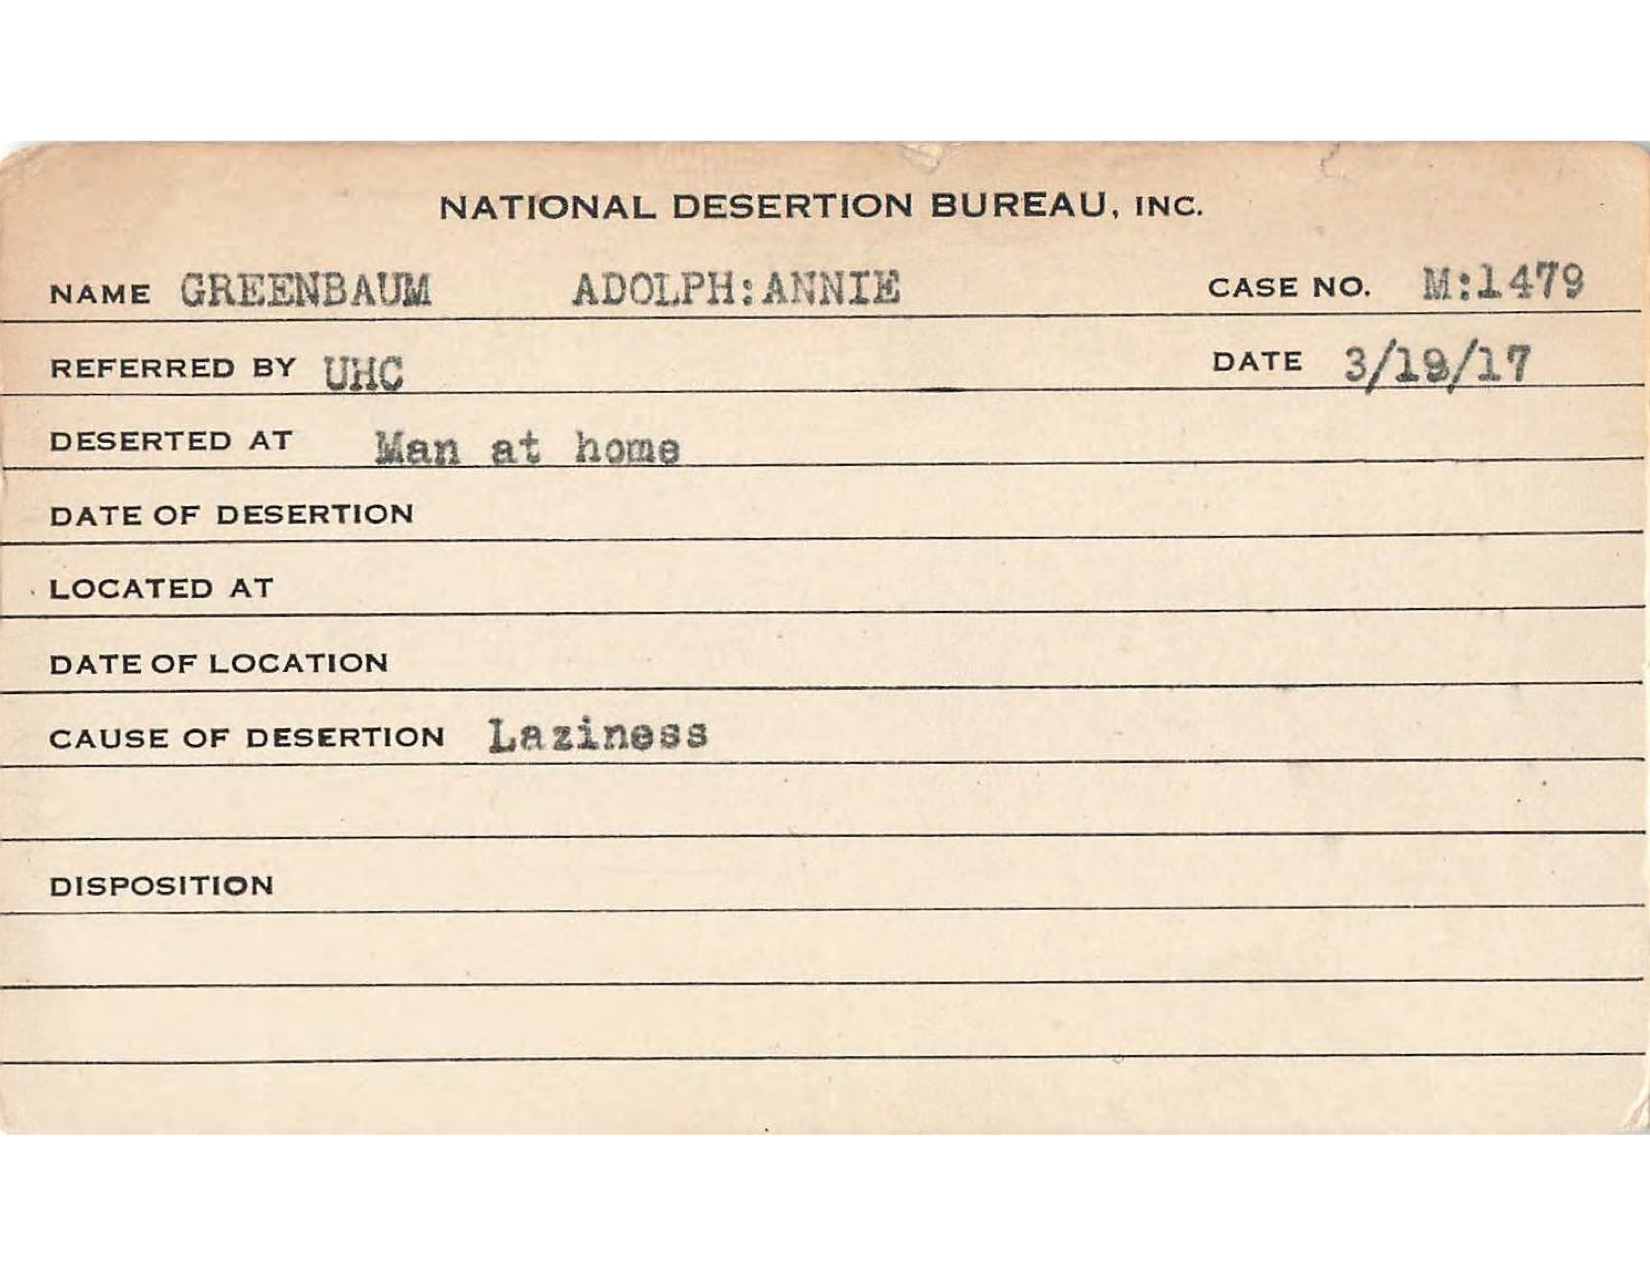 NATIONAL DESERTION BUREAU, INC.
NAME GREENBAUM ADOLPH:ANNIE CASE NO. M:1479
REFERRED BY UHC DATE 3/19/17
DESERTED AT Man at home
DATE OF DESERTION
LOCATED AT
DATE OF LOCATION
CAUSE OF DESERTION Laziness
DISPOSITION